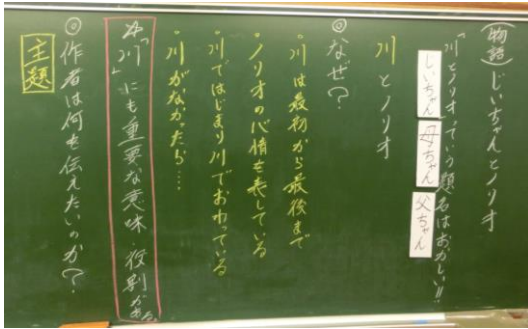 (物語)じいちゃんとノリオ
「川とノリオ」っていう題名はおかしい!!
じいちゃん 母ちゃん 父ちゃん
川とノリオ
◎なぜ?
・川は最初から最後まで
・ノリオの心情を表している
・川ではじまり川でおわっている
・川がなかったら…
「川」にも重要な意味・役割がある
◎作者は何を伝えたいのか?
主題